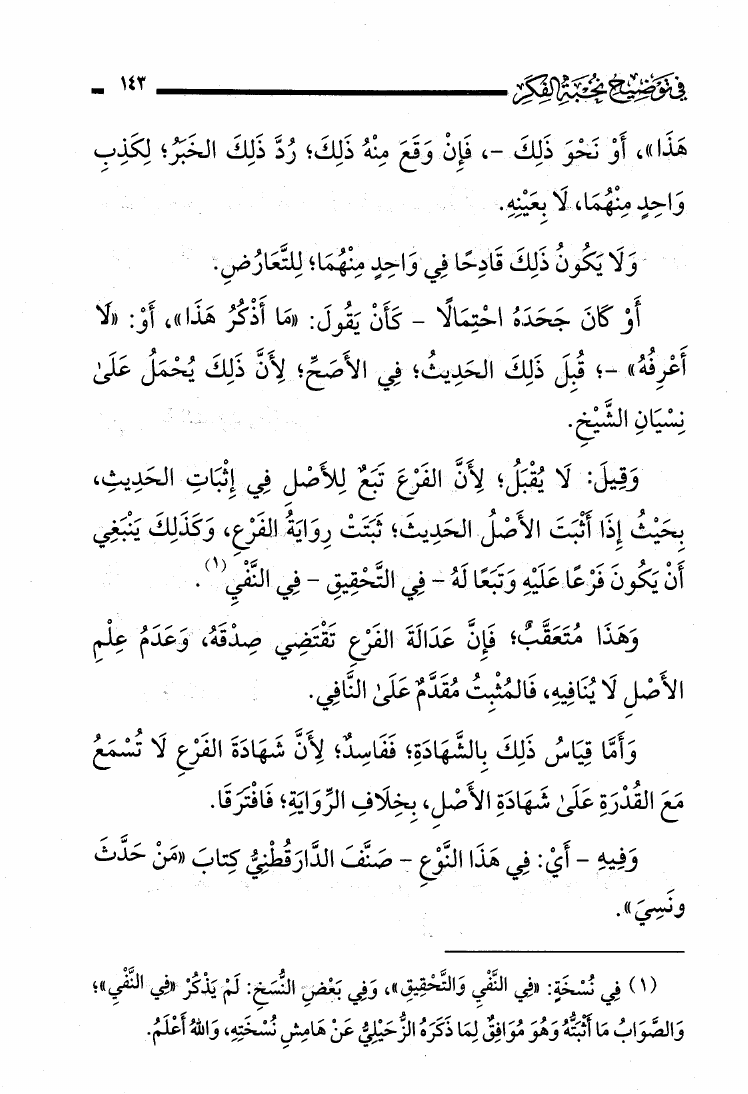 في تَوْضِيحِ نُخْبَةِ الفِكَرِ ١٤٣
هَذَا»، أَوْ نَحْوَ ذَلِكَ -، فَإِنْ وَقَعَ مِنْهُ ذَلِكَ؛ رُدَّ ذَلِكَ الخَبَرُ؛ لِكَذِبِ
وَاحِدٍ مِنْهُمَا، لَا بِعَيْنِهِ.
وَلَا يَكُونُ ذَلِكَ قَادِحًا فِي وَاحِدٍ مِنْهُمَا؛ لِلتَّعَارُضِ.
أَوْ كَانَ جَحَدَهُ احْتِمَالًا - كَأَنْ يَقُولَ: «مَا أَذْكُرُ هَذَا»، أَوْ: «لَا
أَعْرِفُهُ» -؛ قُبِلَ ذَلِكَ الحَدِيثُ؛ فِي الأَصَحِّ؛ لِأَنَّ ذَلِكَ يُحْمَلُ عَلَىٰ
نِسْيَانِ الشَّيْخِ.
وَقِيلَ: لَا يُقْبَلُ؛ لِأَنَّ الفَرْعَ تَبَعٌ لِلأَصْلِ فِي إِثْبَاتِ الحَدِيثِ،
بِحَيْثُ إِذَا أَثْبَتَ الأَصْلُ الحَدِيثَ؛ ثَبَتَتْ رِوَايَةُ الفَرْعِ، وَكَذَلِكَ يَنْبَغِي
أَنْ يَكُونَ فَرْعًا عَلَيْهِ وَتَبَعًا لَهُ - فِي التَّحْقِيقِ - فِي النَّفْيِ(١).
وَهَذَا مُتَعَقَّبٌ؛ فَإِنَّ عَدَالَةَ الفَرْعِ تَقْتَضِي صِدْقَهُ، وَعَدَمُ عِلْمِ
الأَصْلِ لَا يُنَافِيهِ، فَالمُثْبِتُ مُقَدَّمٌ عَلَىٰ النَّافِي.
وَأَمَّا قِيَاسُ ذَلِكَ بِالشَّهَادَةِ؛ فَفَاسِدٌ؛ لِأَنَّ شَهَادَةَ الفَرْعِ لَا تُسْمَعُ
مَعَ القُدْرَةِ عَلَىٰ شَهَادَةِ الأَصْلِ، بِخِلَافِ الرِّوَايَةِ؛ فَافْتَرَقَا.
وَفِيهِ - أَيْ: فِي هَذَا النَّوْعِ - صَنَّفَ الدَّارَقُطْنِيُّ كِتَابَ «مَنْ حَدَّثَ
ونَسِيَ».
(١) فِي نُسْخَةٍ: «فِي النَّفْيِ وَالتَّحْقِيقِ»، وَفِي بَعْضِ النُّسَخِ: لَمْ يَذْكُرْ «فِي النَّفْيِ»؛
وَالصَّوَابُ مَا أَثْبَتُّهُ وَهُوَ مُوَافِقٌ لِمَا ذَكَرَهُ الزُّحَيْلِيُّ عَنْ هَامِشِ نُسْخَتِهِ، وَاللهُ أَعْلَمُ.